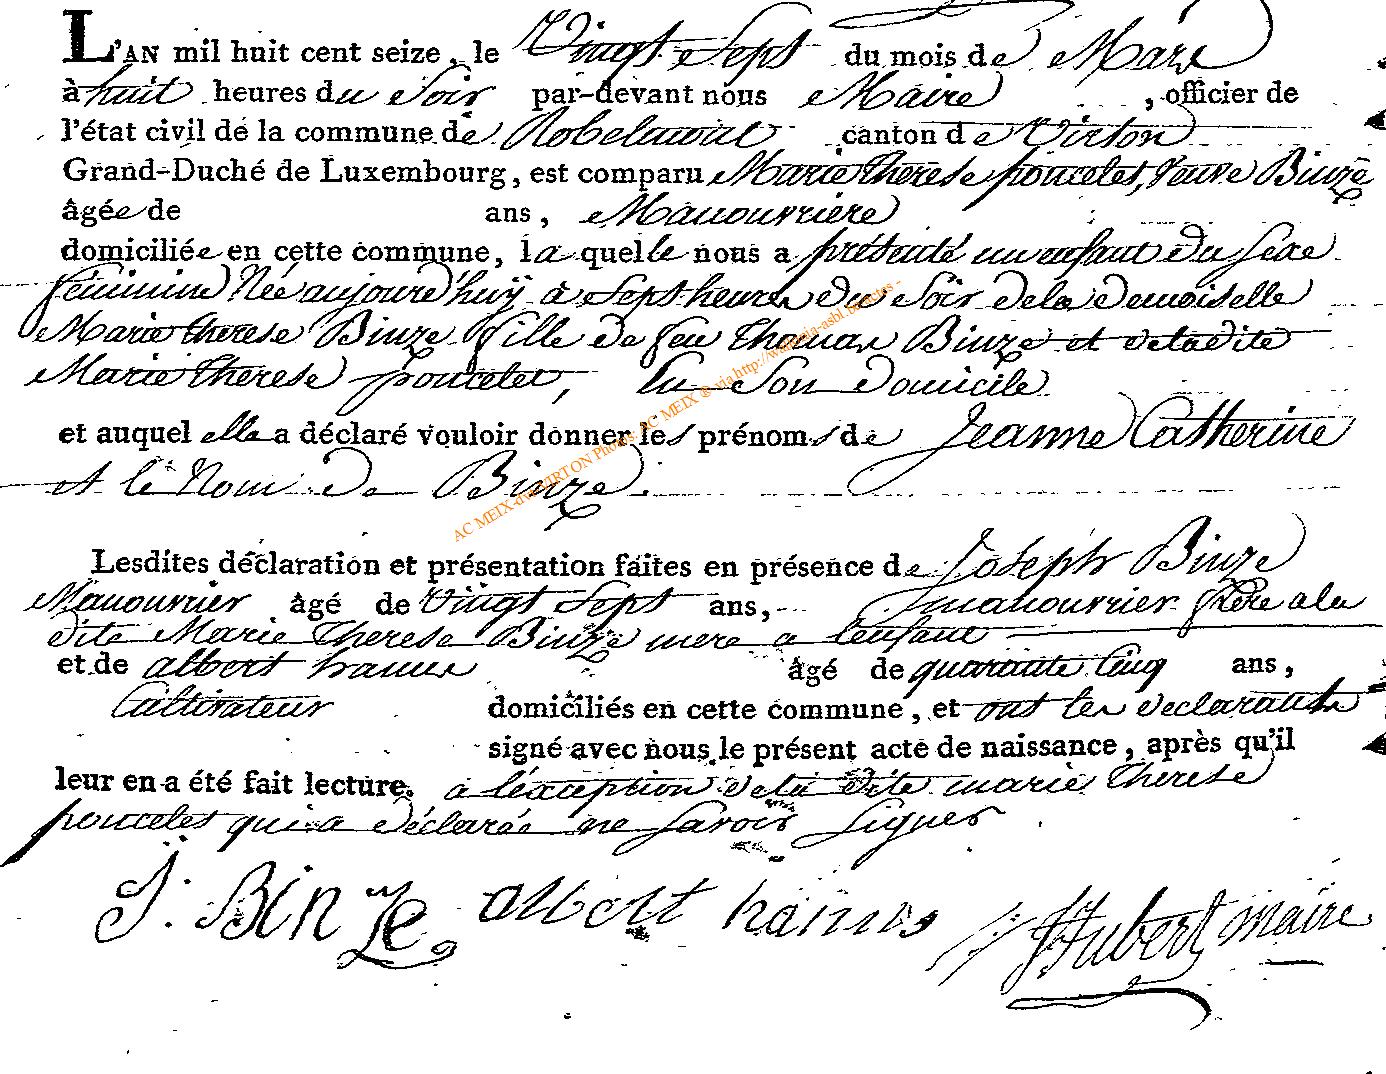 L'AN mil huit cent seize, le Vingt Sept du mois de Mars
à huit heures du Soir par-devant nous Maire, officier de
l'état civil de la commune de Robelmont canton de Virton
Grand-Duché de Luxembourg, est comparu Marie therese poncelet, veuve Binze
âgée de ans, Manouvriere
domiciliée en cette commune, la quelle nous a présenté un enfant du sexe
féminin Née aujourd'huÿ à Sept heures du Soir de la demoiselle
Marie therese Binze fille de feu thomas Binze et de ladite
Marie therese poncelet, en Son domicile
et auquel elle a déclaré vouloir donner les prénoms de Jeanne Catherine
et le Nom de Binze.
Lesdites déclaration et présentation faites en présence de Joseph Binze
Manouvrier âgé de Vingt Sept ans, manouvrier frère a la
dite Marie therese Binze mere a l'enfant
et de albert hanus âgé de quarante Cinq ans,
Cultivateur domiciliés en cette commune, et ont les declarants
signé avec nous le présent acte de naissance, après qu'il
leur en a été fait lecture. a l'éxception de la dite marie therese
poncelet qui a déclarée ne savoir signer
J. Binze albert hanus Hubert maire
AC MEIX-dvt-VIRTON Photos AC MEIX @ via http://wallonia-asbl.be/actes -